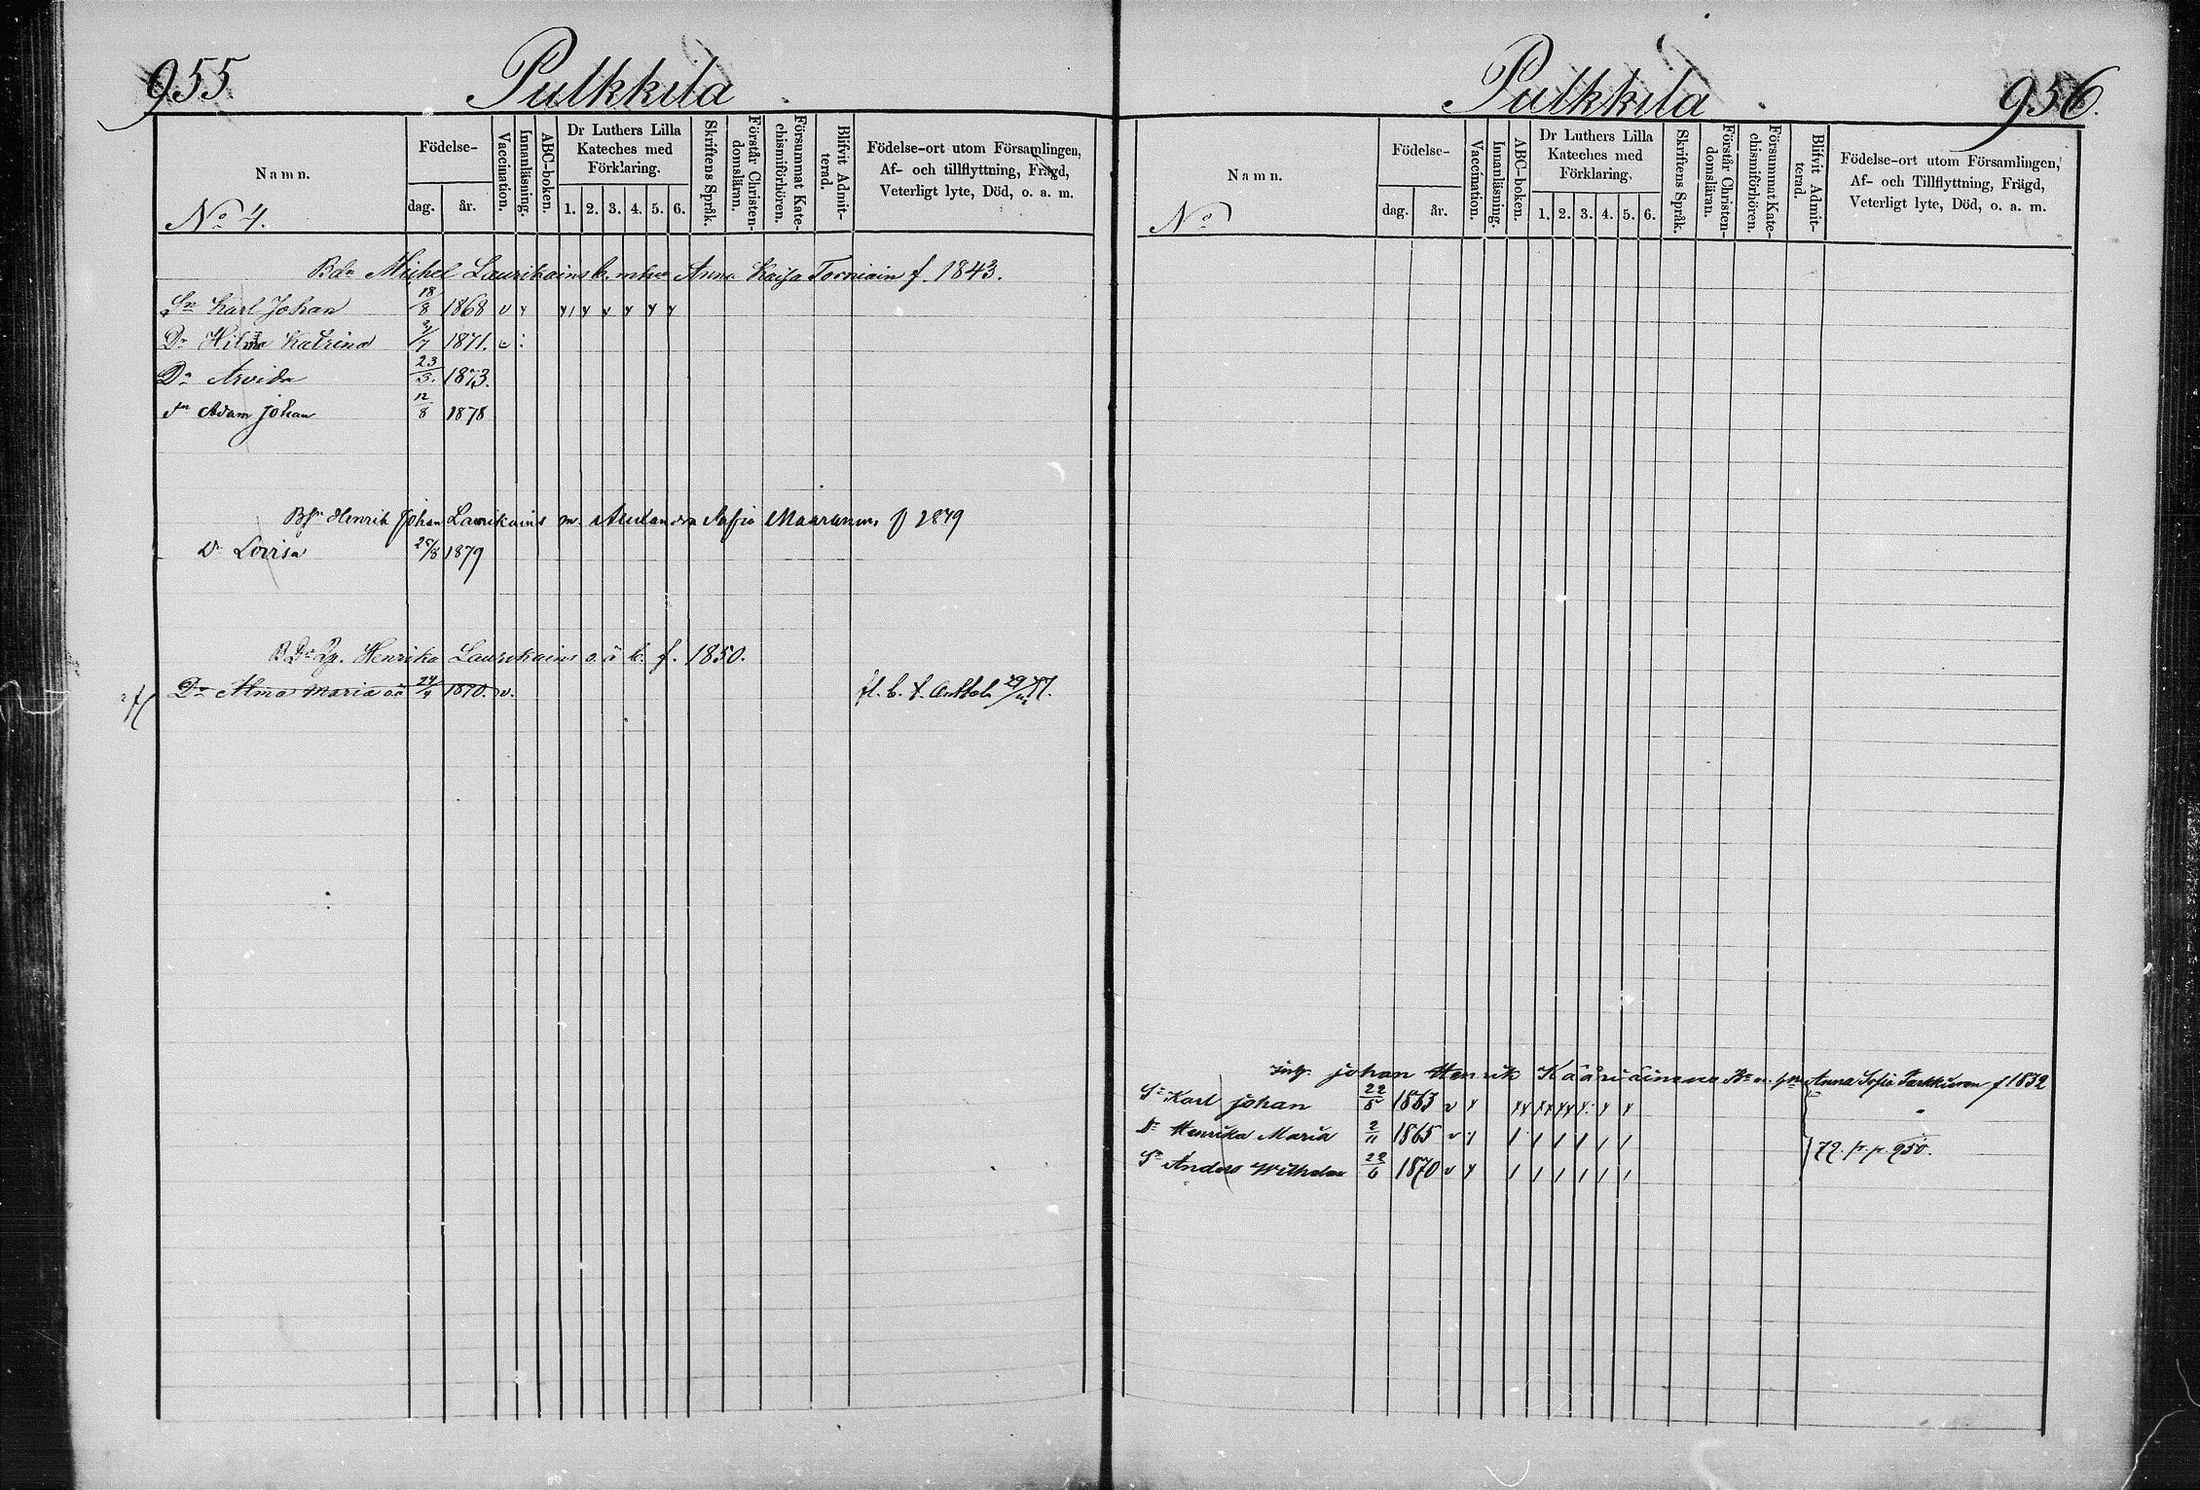 955. Pulkkila
Namn. Födelse- dag. år. Vaccination. Innanläsning. ABC-boken. Dr Luthers Lilla Kateches med Förklaring. 1. 2. 3. 4. 5. 6. Skriftens Språk. Förstår Christendomsläran. Försummat Katechismiförhören. Blifvit Admitterad. Födelse-ort utom Församlingen, Af- och tillflyttning, Frägd, Veterligt lyte, Död, o. a. m.
No 4.
Bdn Michel Laurikains mhu Anna Kaisa f. 1843.
Sn Karl Johan 18/8 1868 v
Dr Hilma Katrina 1871.
Dr Arvida 23/3. 1873.
Sn Adam Johan 12/8 1878
Henrik Johan Laurikains m. Alexandra Sofia f 1879
Dr Lovisa 25/8 1879
Henrika Laurikains o. ä. b. f. 1850.
Dr Alma Maria oä 24/4 1870. v. fl. b. t. 29/ 77.
Pulkkila 956.
Namn. Födelse- dag. år. Vaccination. Innanläsning. ABC-boken. Dr Luthers Lilla Kateches med Förklaring. 1. 2. 3. 4. 5. 6. Skriftens Språk. Förstår Christendomsläran. Försummat Katechismiförhören. Blifvit Admitterad. Födelse-ort utom Församlingen, Af- och Tillflyttning, Frägd, Veterligt lyte, Död, o. a. m.
No
Inh. Johan Henrik Kääriäinens Anna Sofia f 1832
Sn Karl Johan 22/8 1863 v
Dr Henrika Maria 2/11 1865 v
Sn Anders Wilhelm 22/6 1870 v
72. p. p. 950.